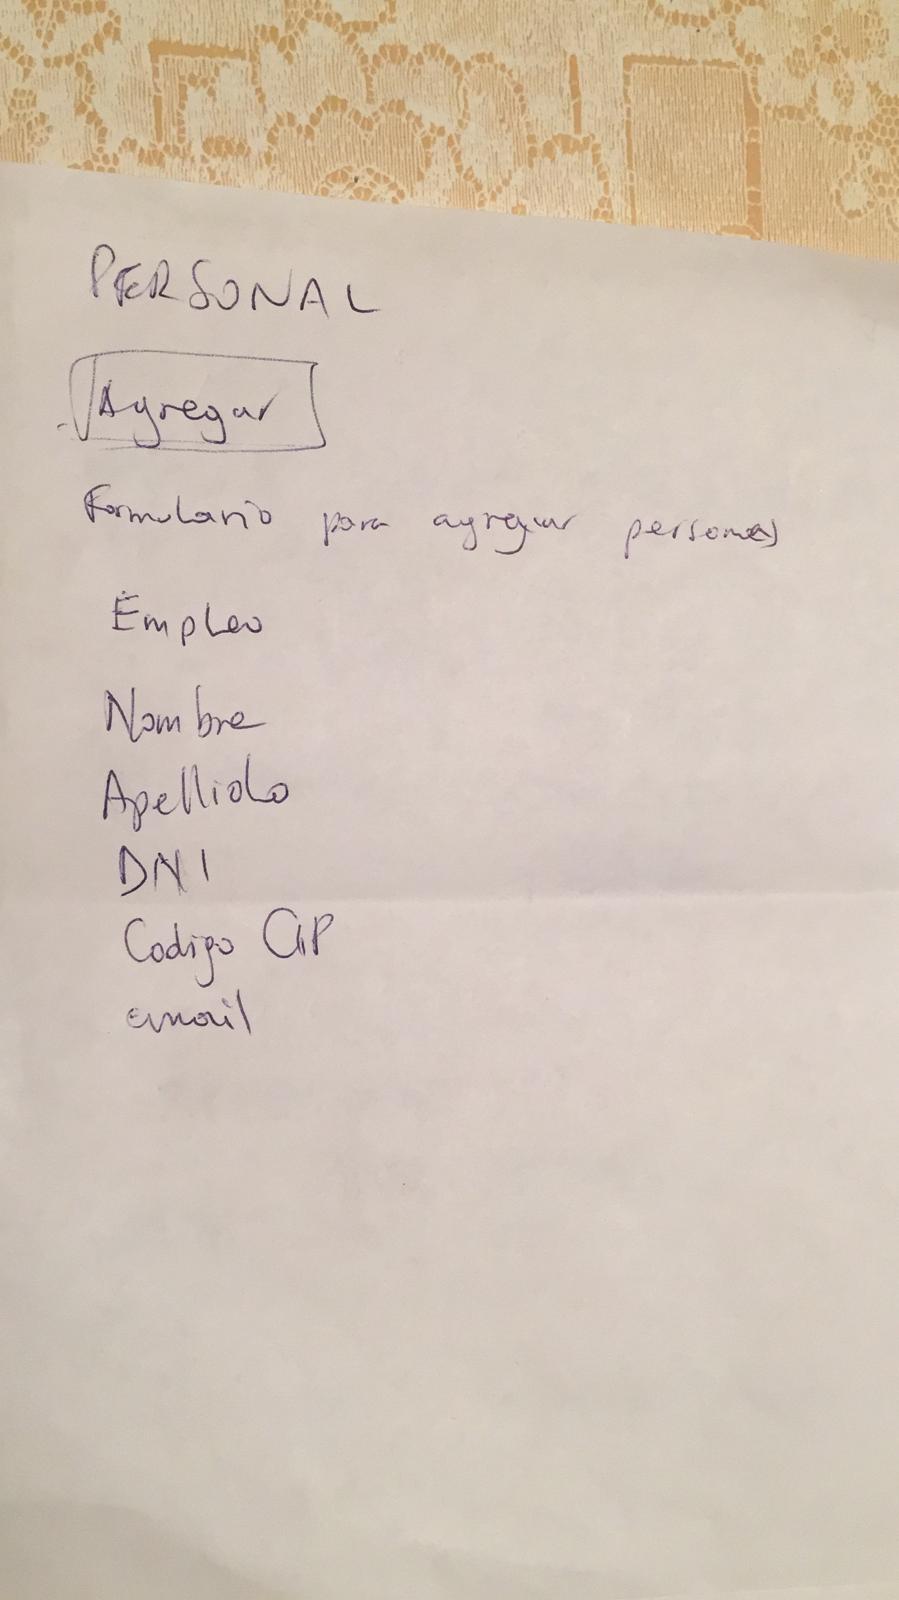 PERSONAL
Agregar
Formulario para agregar personas
Empleo
Nombre
Apellido
DNI
Codigo CIP
email